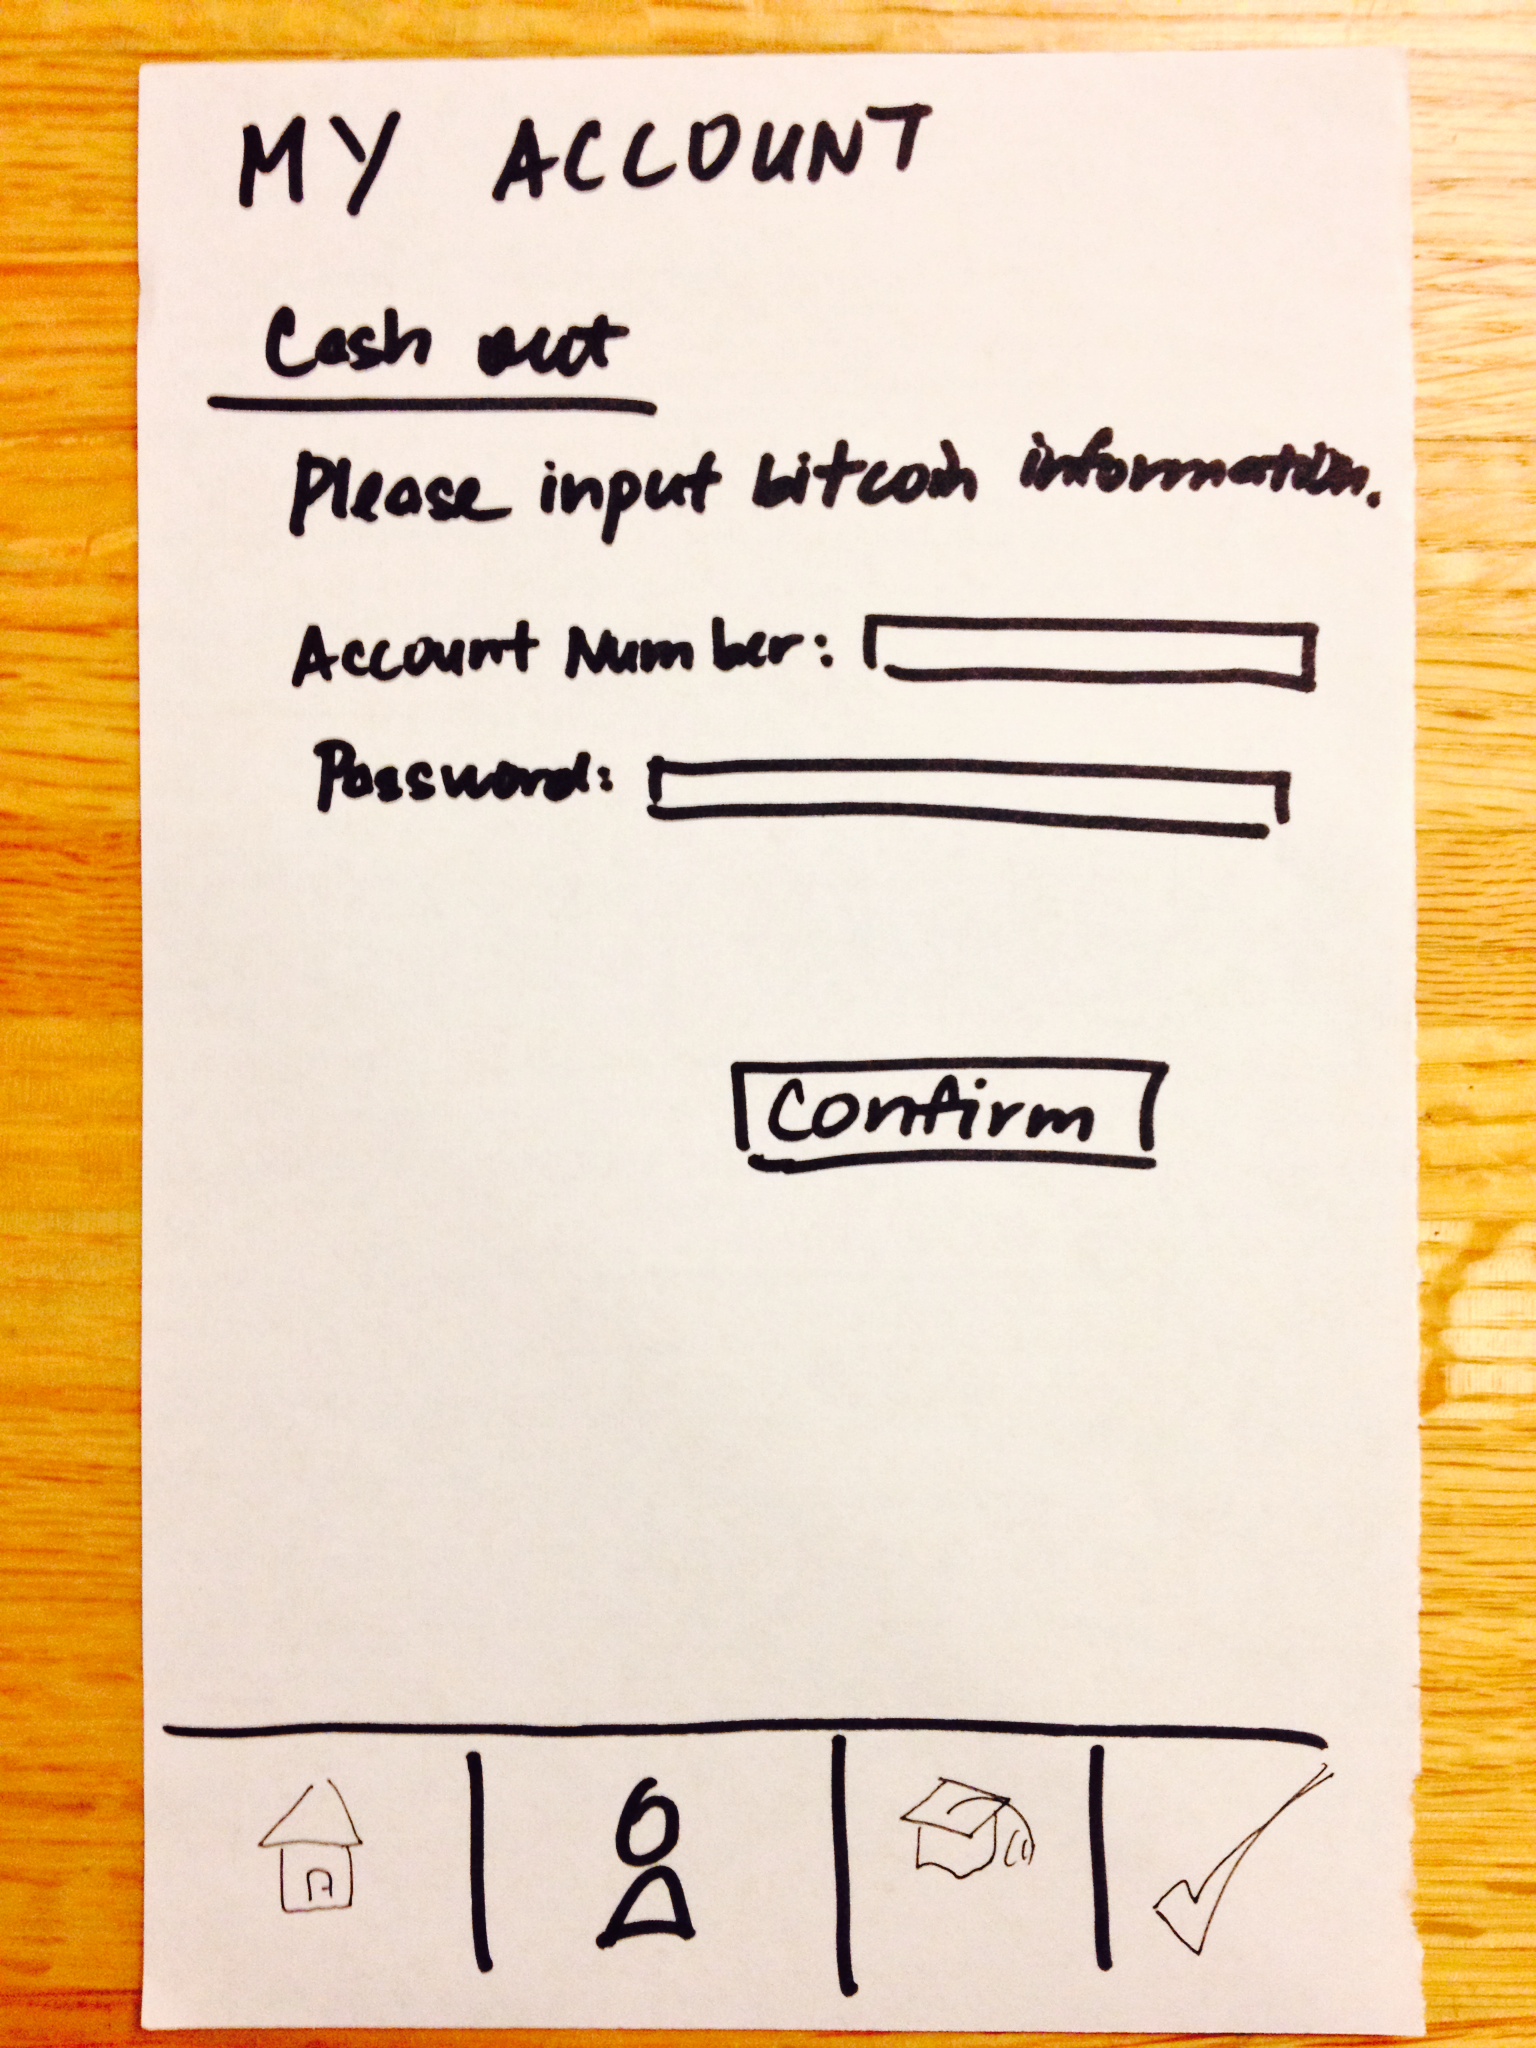 MY ACCOUNT
Cash out
Please input bitcoin information.
Account Number:
Password:
Confirm